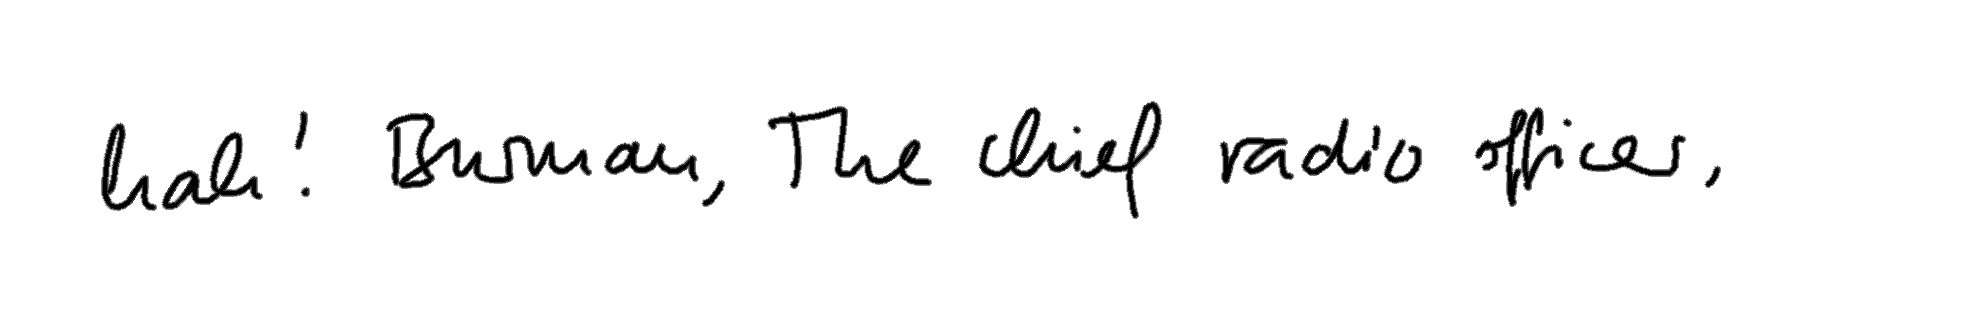 hah! Burman, The chief radio officer,